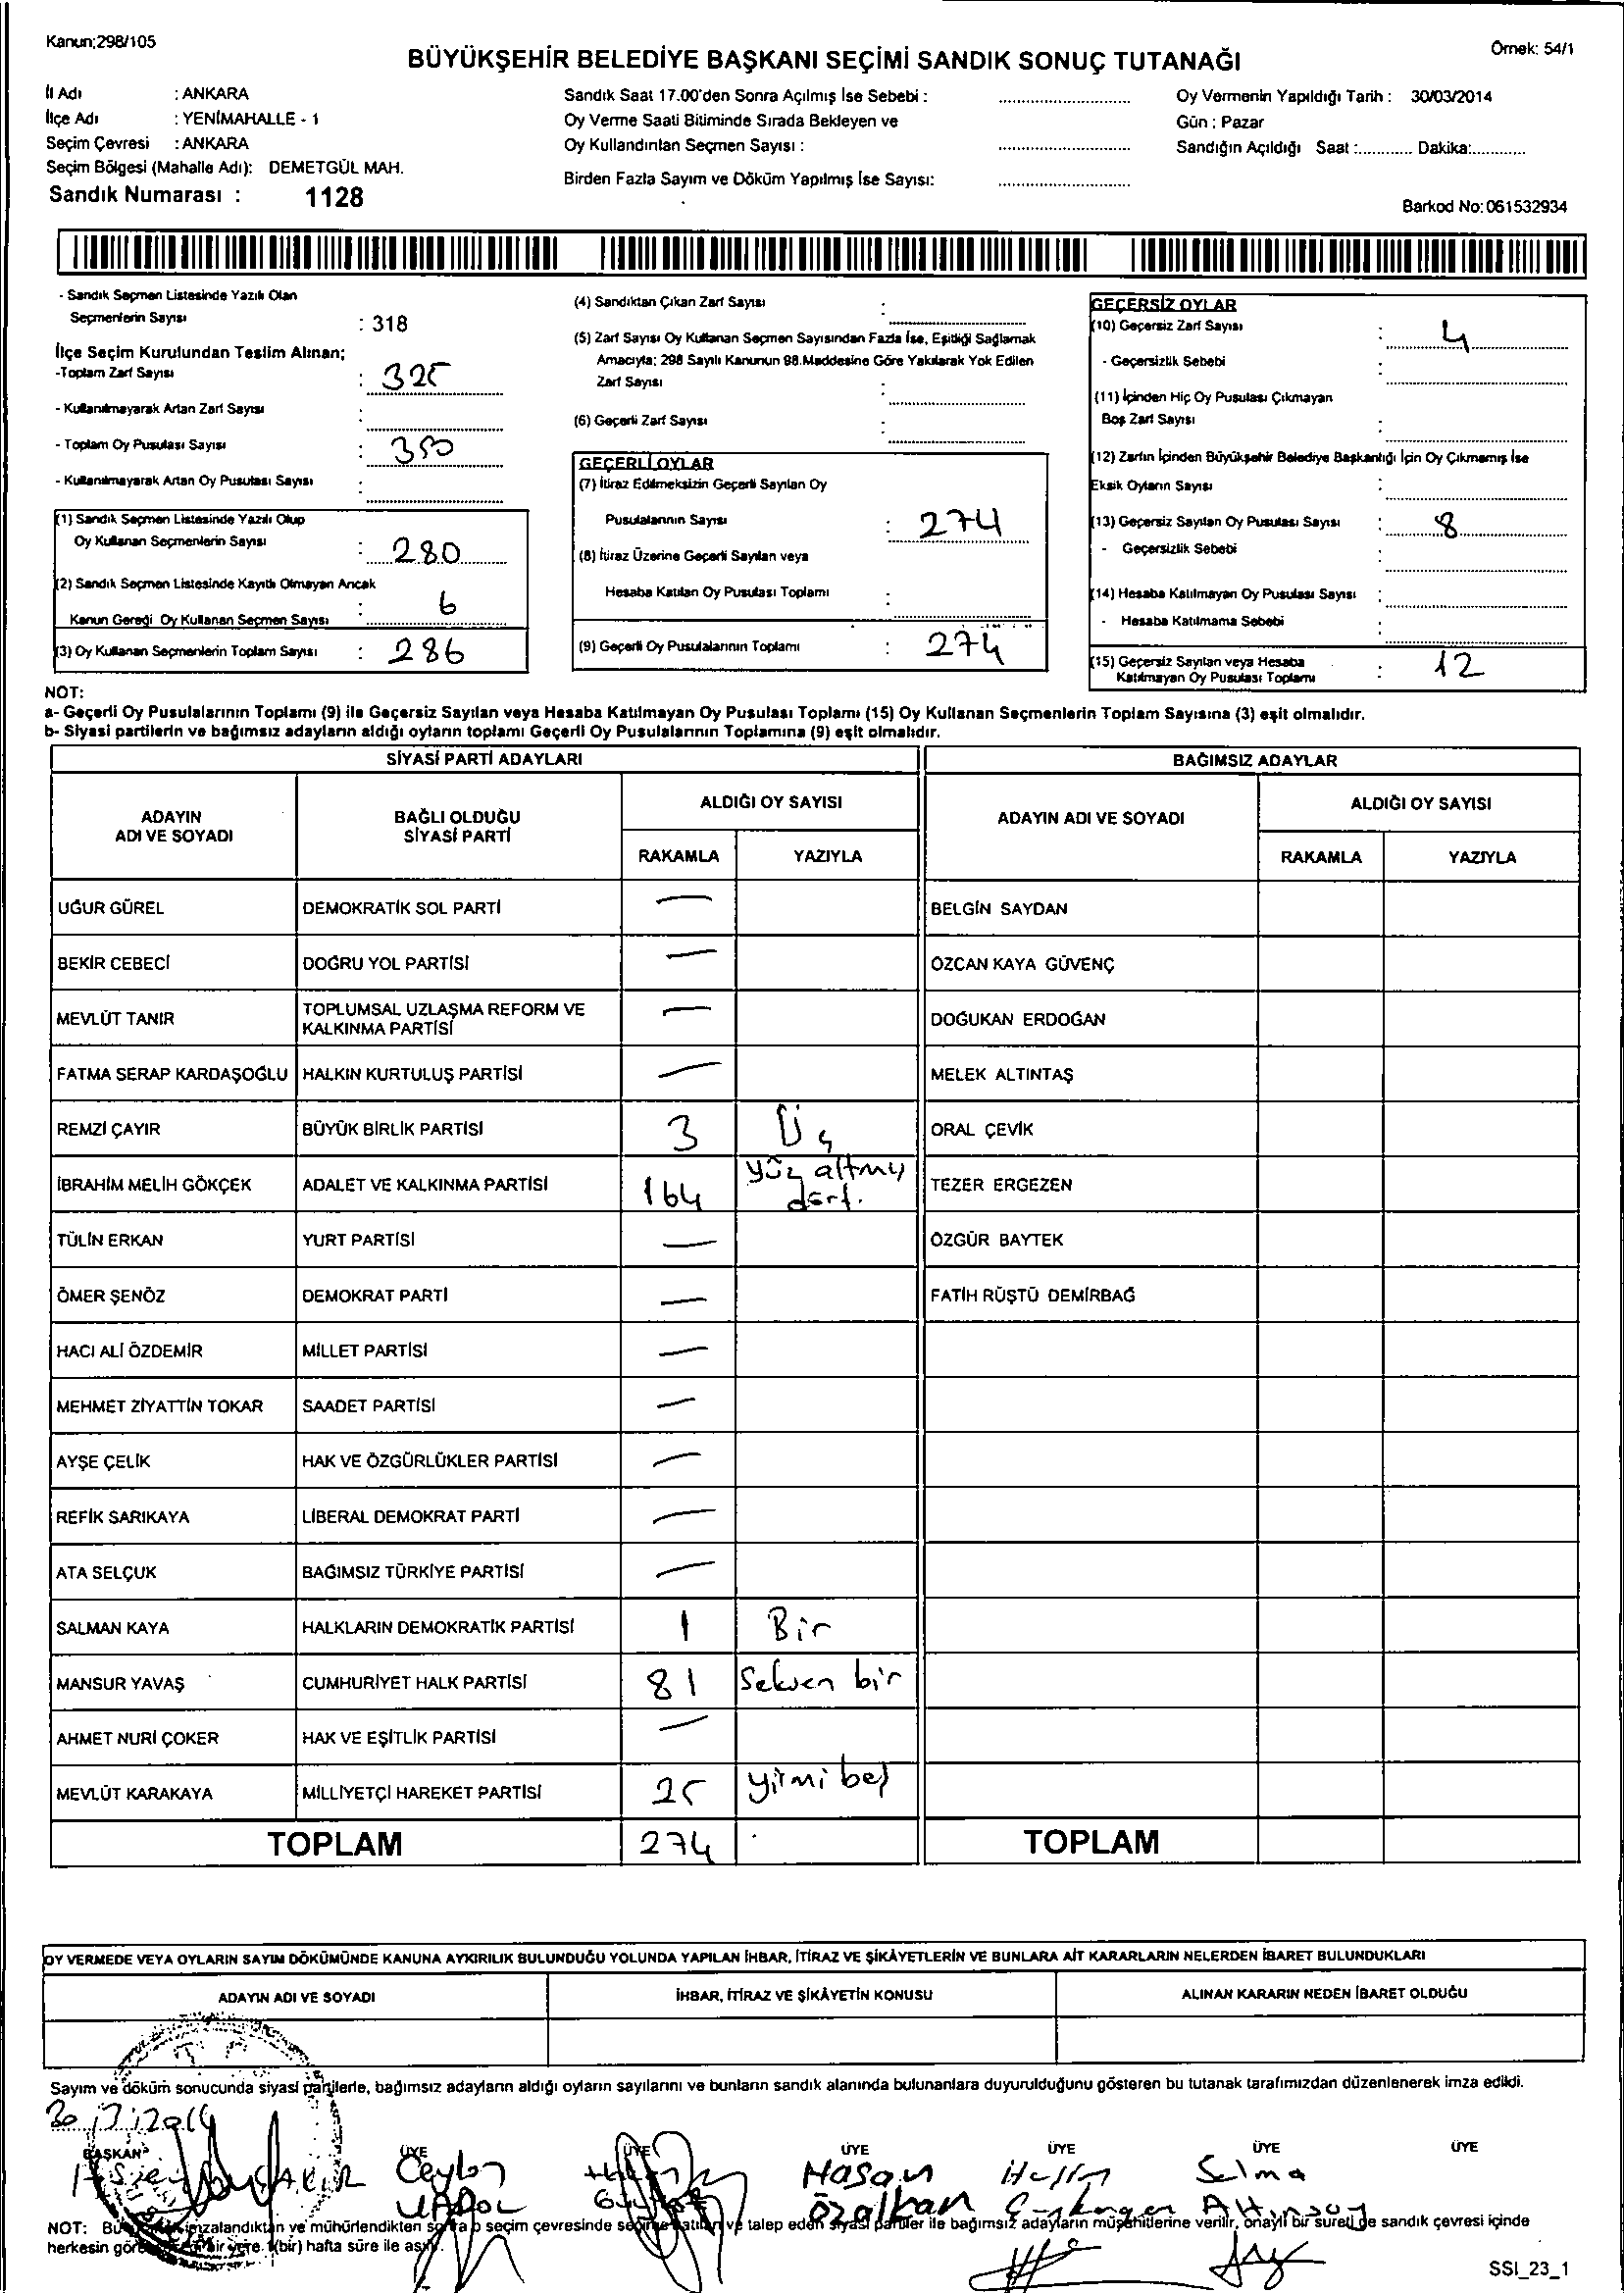 Kanun;298/105
Örnek: 54/1
BÜYÜKŞEHİR BELEDİYE BAŞKANI SEÇİMİ SANDIK SONUÇ TUTANAĞI
İl Adı : ANKARA
İlçe Adı : YENİMAHALLE - 1
Seçim Çevresi : ANKARA
Seçim Bölgesi (Mahalle Adı): DEMETGÜL MAH.
Sandık Numarası : 1128
Sandık Saat 17.00'den Sonra Açılmış İse Sebebi :
Oy Verme Saati Bitiminde Sırada Bekleyen ve
Oy Kullandırılan Seçmen Sayısı :
Birden Fazla Sayım ve Döküm Yapılmış İse Sayısı:
Oy Vermenin Yapıldığı Tarih : 30/03/2014
Gün : Pazar
Sandığın Açıldığı Saat :............ Dakika:............
Barkod No: 061532934
- Sandık Seçmen Listesinde Yazılı Olan
Seçmenlerin Sayısı : 318
İlçe Seçim Kurulundan Teslim Alınan;
-Toplam Zarf Sayısı : 325
- Kullanılmayarak Artan Zarf Sayısı :
- Toplam Oy Pusulası Sayısı : 350
- Kullanılmayarak Artan Oy Pusulası Sayısı :
(1) Sandık Seçmen Listesinde Yazılı Olup
Oy Kullanan Seçmenlerin Sayısı : 280
(2) Sandık Seçmen Listesinde Kayıtlı Olmayan Ancak
Kanun Gereği Oy Kullanan Seçmen Sayısı : 6
(3) Oy Kullanan Seçmenlerin Toplam Sayısı : 286
(4) Sandıktan Çıkan Zarf Sayısı :
(5) Zarf Sayısı Oy Kullanan Seçmen Sayısından Fazla İse, Eşitliği Sağlamak
Amacıyla; 298 Sayılı Kanunun 98.Maddesine Göre Yakılarak Yok Edilen
Zarf Sayısı :
(6) Geçerli Zarf Sayısı :
GEÇERLİ OYLAR
(7) İtiraz Edilmeksizin Geçerli Sayılan Oy
Pusulalarının Sayısı : 274
(8) İtiraz Üzerine Geçerli Sayılan veya
Hesaba Katılan Oy Pusulası Toplamı :
(9) Geçerli Oy Pusulalarının Toplamı : 274
GEÇERSİZ OYLAR
(10) Geçersiz Zarf Sayısı : 4
- Geçersizlik Sebebi :
(11) İçinden Hiç Oy Pusulası Çıkmayan
Boş Zarf Sayısı :
(12) Zarfın İçinden Büyükşehir Belediye Başkanlığı İçin Oy Çıkmamış İse
Eksik Oyların Sayısı :
(13) Geçersiz Sayılan Oy Pusulası Sayısı : 8
- Geçersizlik Sebebi :
(14) Hesaba Katılmayan Oy Pusulası Sayısı :
- Hesaba Katılmama Sebebi :
(15) Geçersiz Sayılan veya Hesaba
Katılmayan Oy Pusulası Toplamı : 12
NOT:
a- Geçerli Oy Pusulalarının Toplamı (9) ile Geçersiz Sayılan veya Hesaba Katılmayan Oy Pusulası Toplamı (15) Oy Kullanan Seçmenlerin Toplam Sayısına (3) eşit olmalıdır.
b- Siyasi partilerin ve bağımsız adayların aldığı oyların toplamı Geçerli Oy Pusulalarının Toplamına (9) eşit olmalıdır.
SİYASİ PARTİ ADAYLARI
BAĞIMSIZ ADAYLAR
ADAYIN
ADI VE SOYADI
BAĞLI OLDUĞU
SİYASİ PARTİ
ALDIĞI OY SAYISI
RAKAMLA YAZIYLA
ADAYIN ADI VE SOYADI
ALDIĞI OY SAYISI
RAKAMLA YAZIYLA
UĞUR GÜREL DEMOKRATİK SOL PARTİ — BELGİN SAYDAN
BEKİR CEBECİ DOĞRU YOL PARTİSİ — ÖZCAN KAYA GÜVENÇ
MEVLÜT TANIR TOPLUMSAL UZLAŞMA REFORM VE
KALKINMA PARTİSİ — DOĞUKAN ERDOĞAN
FATMA SERAP KARDAŞOĞLU HALKIN KURTULUŞ PARTİSİ — MELEK ALTINTAŞ
REMZİ ÇAYIR BÜYÜK BİRLİK PARTİSİ 3 Üç ORAL ÇEVİK
İBRAHİM MELİH GÖKÇEK ADALET VE KALKINMA PARTİSİ 164 yüz altmış
dört. TEZER ERGEZEN
TÜLİN ERKAN YURT PARTİSİ — ÖZGÜR BAYTEK
ÖMER ŞENÖZ DEMOKRAT PARTİ — FATİH RÜŞTÜ DEMİRBAĞ
HACI ALİ ÖZDEMİR MİLLET PARTİSİ —
MEHMET ZİYATTİN TOKAR SAADET PARTİSİ —
AYŞE ÇELİK HAK VE ÖZGÜRLÜKLER PARTİSİ —
REFİK SARIKAYA LİBERAL DEMOKRAT PARTİ —
ATA SELÇUK BAĞIMSIZ TÜRKİYE PARTİSİ —
SALMAN KAYA HALKLARIN DEMOKRATİK PARTİSİ 1 Bir
MANSUR YAVAŞ CUMHURİYET HALK PARTİSİ 81 Seksen bir
AHMET NURİ ÇOKER HAK VE EŞİTLİK PARTİSİ —
MEVLÜT KARAKAYA MİLLİYETÇİ HAREKET PARTİSİ 25 yirmi beş
TOPLAM 274 TOPLAM
OY VERMEDE VEYA OYLARIN SAYIM DÖKÜMÜNDE KANUNA AYKIRILIK BULUNDUĞU YOLUNDA YAPILAN İHBAR, İTİRAZ VE ŞİKÂYETLERİN VE BUNLARA AİT KARARLARIN NELERDEN İBARET BULUNDUKLARI
ADAYIN ADI VE SOYADI İHBAR, İTİRAZ VE ŞİKÂYETİN KONUSU ALINAN KARARIN NEDEN İBARET OLDUĞU
Sayım ve döküm sonucunda siyasi partilerle, bağımsız adayların aldığı oyların sayılarını ve bunların sandık alanında bulunanlara duyurulduğunu gösteren bu tutanak tarafımızdan düzenlenerek imza edildi.
BAŞKAN ÜYE ÜYE ÜYE ÜYE ÜYE ÜYE
Ceylan Hasan Selma
Özalkan
NOT: imzalandıktan ve mühürlendikten sonra o seçim çevresinde seçime katılan ve talep eden siyasi partiler ile bağımsız adayların müşahitlerine verilir, onaylı bir sureti de sandık çevresi içinde
herkesin (bir) hafta süre ile
SSI_23_1